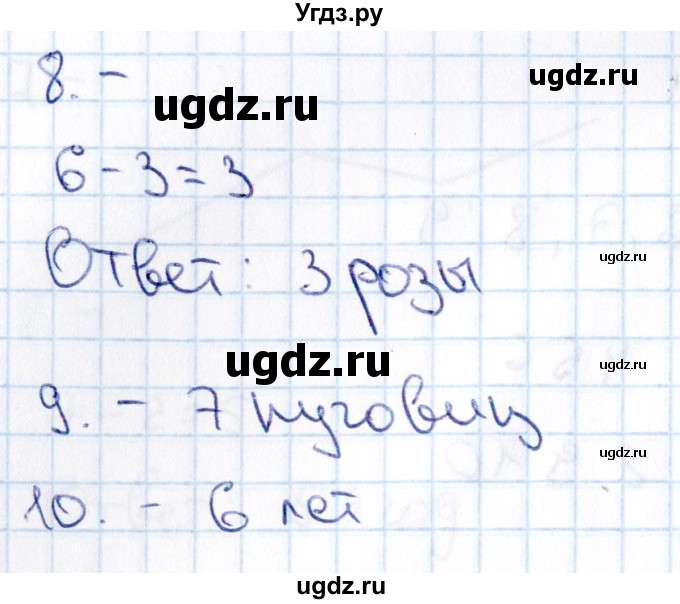 Угдз.ру
8. -
ugdz.ru
ugdz.ru
6 - 3 = 3
Ответ: 3 розы
ugdz.ru
ugdz.ru
ugdz.ru
9. - 7 пуговиц
ugdz.ru
10. - 6 лет
ugdz.ru